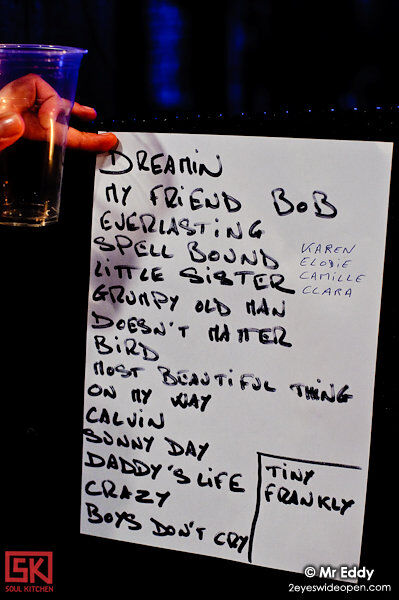 DREAMIN
MY FRIEND BOB
EVERLASTING
SPELL BOUND
LITTLE SISTER
GRUMPY OLD MAN
DOESN'T MATTER
BIRD
MOST BEAUTIFUL THING
ON MY WAY
CALVIN
SUNNY DAY
DADDY'S LIFE
CRAZY
BOYS DON'T CRY
KAREN
ELODIE
CAMILLE
CLARA
TINY
FRANKLY
SK
SOUL KITCHEN
© Mr Eddy
2eyeswideopen.com